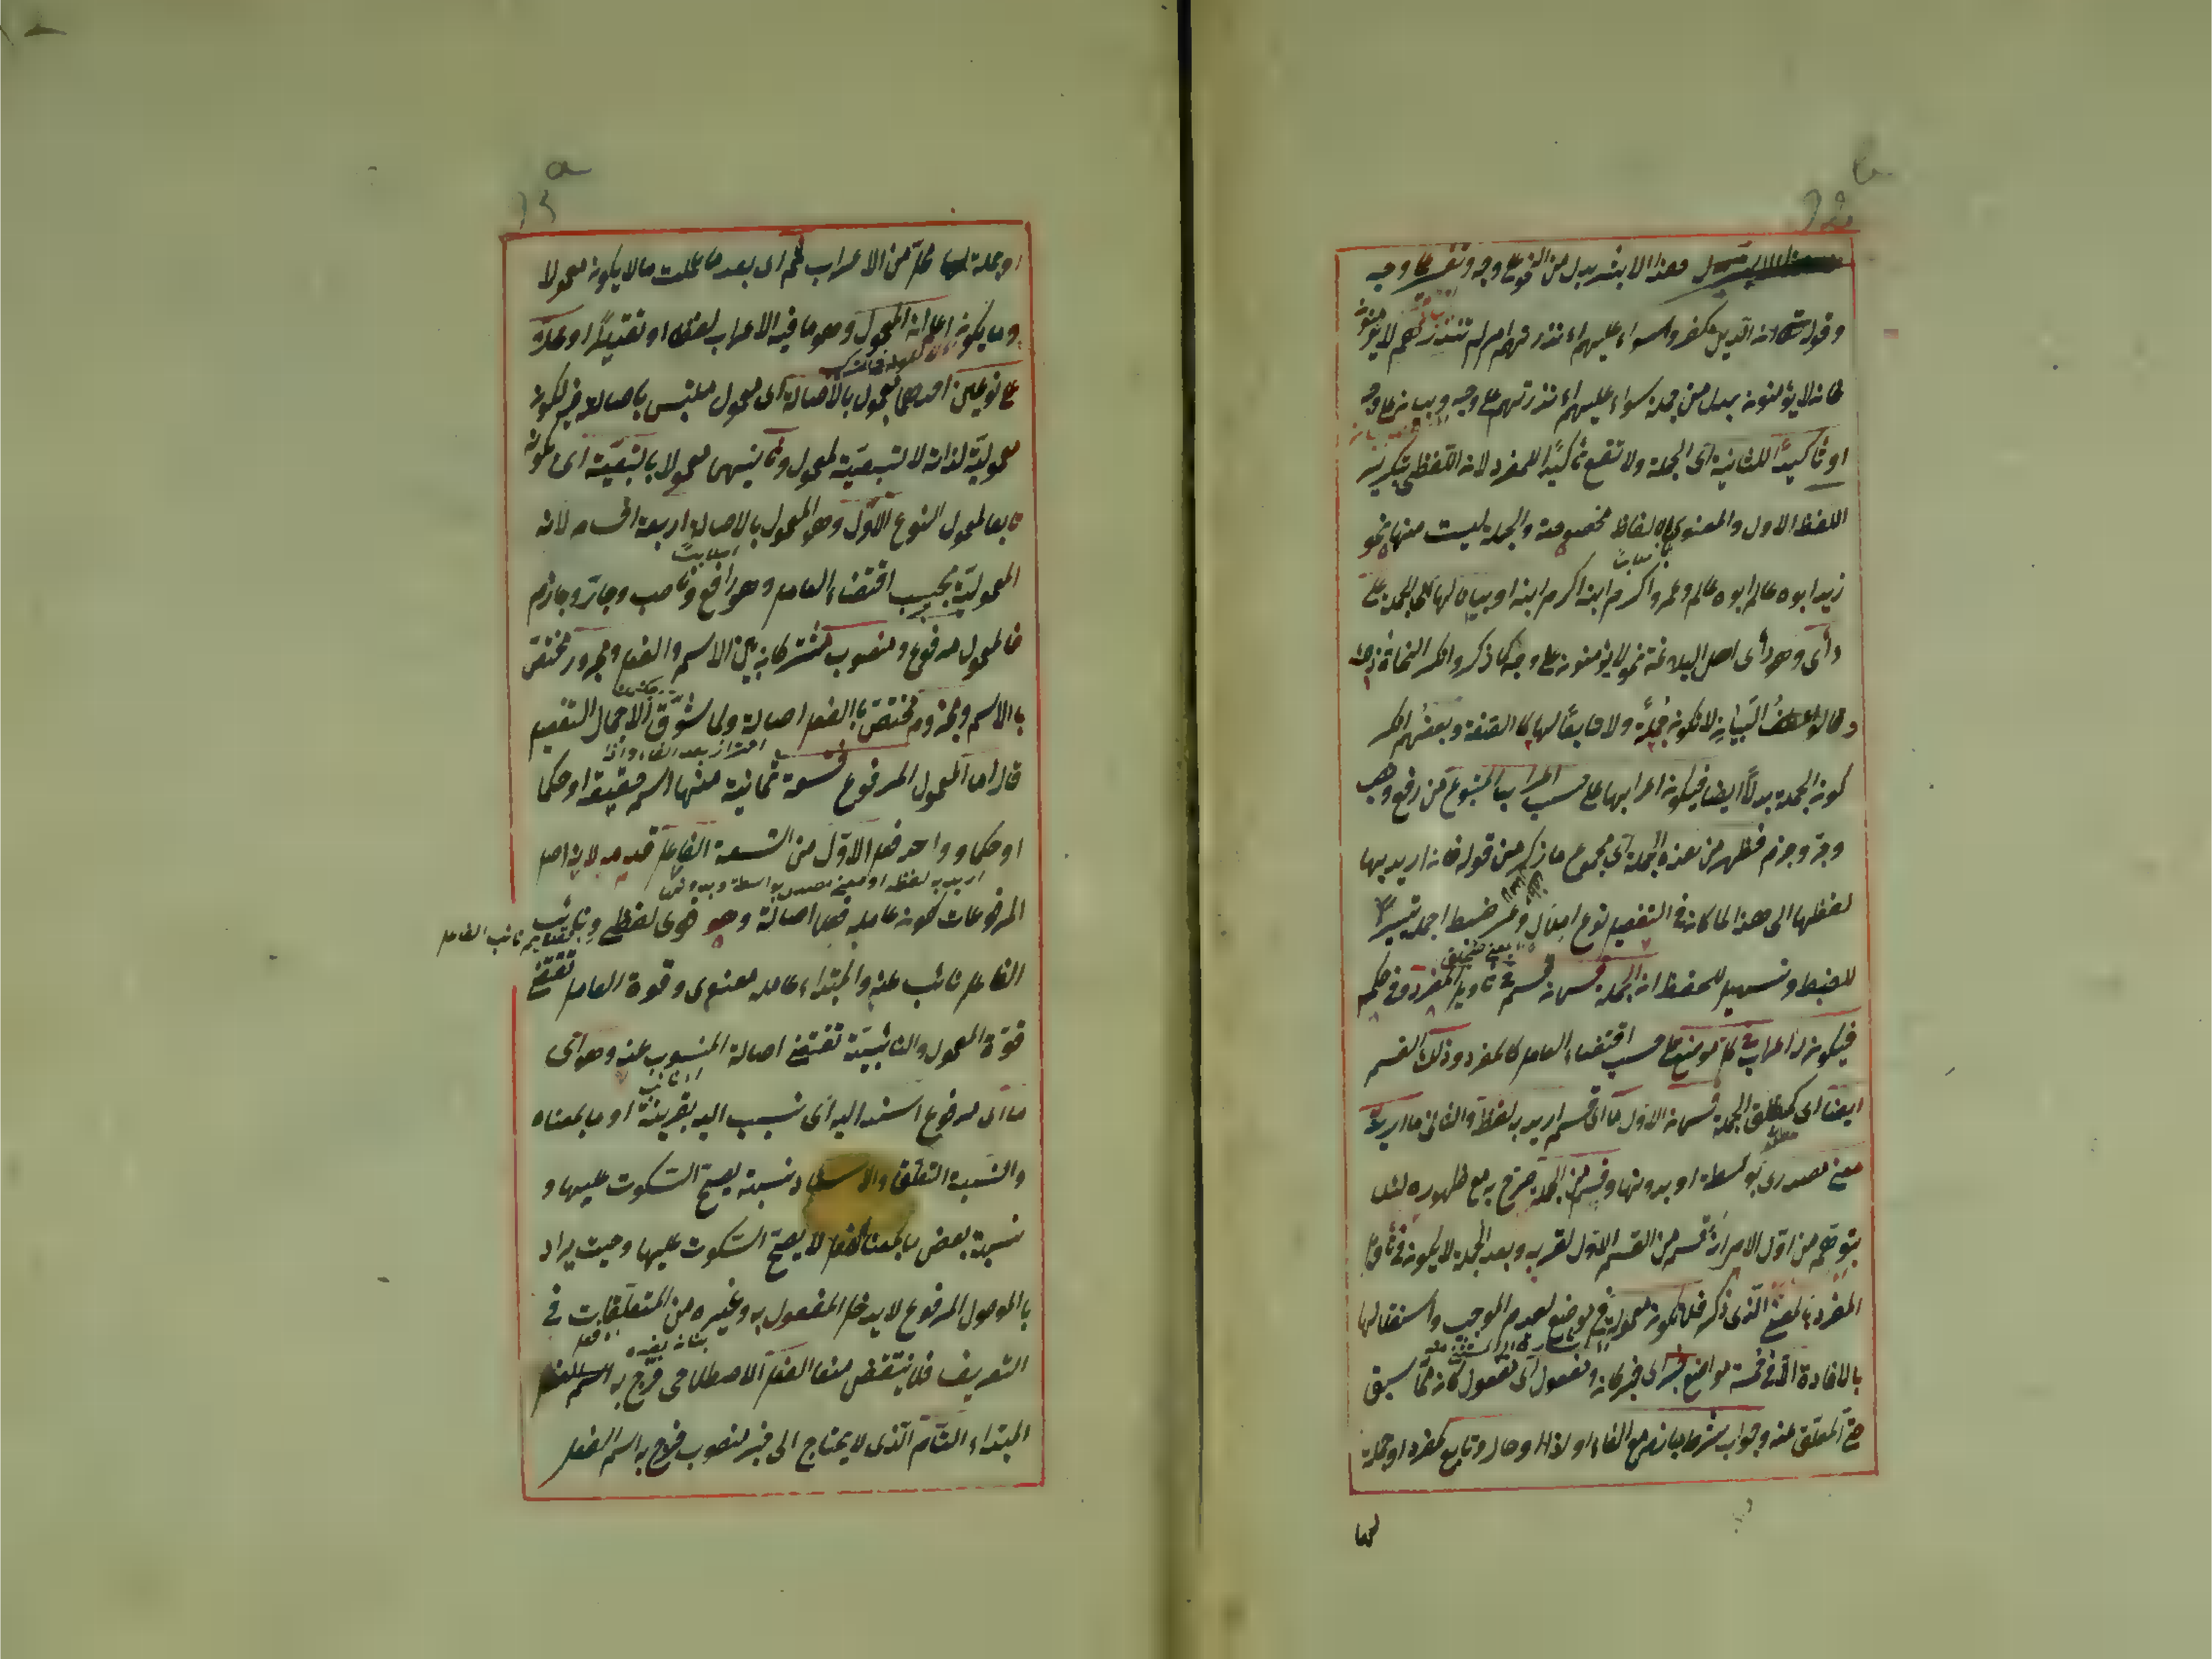 هذا الا بشر بدل من النجوى على وجه وتفسير على وجه
وقوله ان الذين كفروا سواء عليهم ءانذرتهم ام لم تنذرهم لا يؤمنون
فانه لا يؤمنون بدل من جملة سواء عليهم ءانذرتهم على وجه وبيان على وجه
او تأكيدا للثانية اى الجملة ولا تقع تأكيدا للمفرد لان اللفظى تكرير
اللفظ الاول والمعنوى بالفاظ مخصوصة والجملة ليست منها نحو
زيد ابوه عالم ابوه عالم وعمرو اكرم ابنه اكرم ابنه او بيانا لها اى الجملة على
رأى وهو رأى اهل البلاغة نحو لا يؤمنون على وجه كما ذكر وانكر النحاة
وقالوا عطف البيان لا تكون جملة ولا تابعا لها كالصفة وبعضهم انكر
كون الجملة بدلا ايضا فيكون اعرابها على حسب اعراب المتبوع من رفع ونصب
وجر وجزم فظهر من هذه الجملة اى مجموع ما ذكر من قوله فان اريد بها
لفظها الى هذا لما كان فى التفصيل نوع املال وعسر ضبط اجمله تيسيرا
للضبط وتسهيلا للحفظ ان الجملة قسمان قسم فى تأويل المفرد وفى حكمه
فيكون له اعراب فى كل موضع على حسب اقتضاء العامل كالمفرد وذلك القسم
ايضا اى كمطلق الجملة قسمان الاول ما اى قسم اريد به لفظه والثانى ما اريد به
معنى مصدرى بواسطة او بدونها وقسم من الجملة صرح به مع ظهوره لئلا
يتوهم من اول الامر انه قسم من القسم الاول لقربه وبعد الجملة لا يكون فى تأويل
المفرد بالمعنى الذى ذكر فلا تكون معمولة فى موضع لعدم الموجب واستقلالها
بالافادة الا فى خمسة مواضع خبر اى خبر كان ومفعول اى مفعول كان مما سبق
حتى المعلق عنه وجواب شرط جازم مع الفاء او اذا وحال وتابع لمفرد او جملة
لها
او جملة لها محل من الاعراب ثم اى بعد ما علمت ما لا يكون معمولا
وما يكون اعلم ان المعمول وهو ما فيه الاعراب لفظا او تقديرا او محلا
على نوعين احدهما معمول بالاصالة اى معمول ملتبس باصالة فيه لكون
معموليته لذاته لا لتبعيته لمعمول وثانيهما معمول بالتبعية اى بكونه
تابعا لمعمول النوع الاول وهو المعمول بالاصالة اربعة اقسام لان
المعمولية بحسب اقتضاء العامل وهو رافع وناصب وجار وجازم
فالمعمول مرفوع ومنصوب مشتركان بين الاسم والفعل ومجرور مختص
بالاسم ومجزوم مختص بالفعل اصالة ولما شوق الاجمال التفصيل
قال اما المعمول المرفوع فتسعة ثمانية منها اسم حقيقة او حكما
او حكما وواحد فعل الاول من التسعة الفاعل قدمه لانه اصل
اريد به لفظه او معنى مصدرى بواسطة وبدونها
المرفوعات لكون عامله فعلا اصالة وهو قوى لفظى ونائب
الفاعل نائب عنه والمبتداء عامله معنوى وقوة العامل تقتضى
قوة المعمول والنائبية تقتضى اصالة المنسوب عنه وهو اى
ما اى مرفوع اسند اليه اى نسب اليه بقرينة او ما بمعناه
والنسبة التعلق والاسناد نسبة يصح السكوت عليها و
نسبة بعض ما بمعنى الفعل لا يصح السكوت عليها وحيث يراد
بالموصول المرفوع لا يدخل المفعول به وغيره من المتعلقات فى
التعريف فلا ينتقض منعا الفعل الاصطلاحى فخرج به اسم الفعل
المبتداء التام الذى لا يحتاج الى خبر منصوب فخرج به اسم الفعل